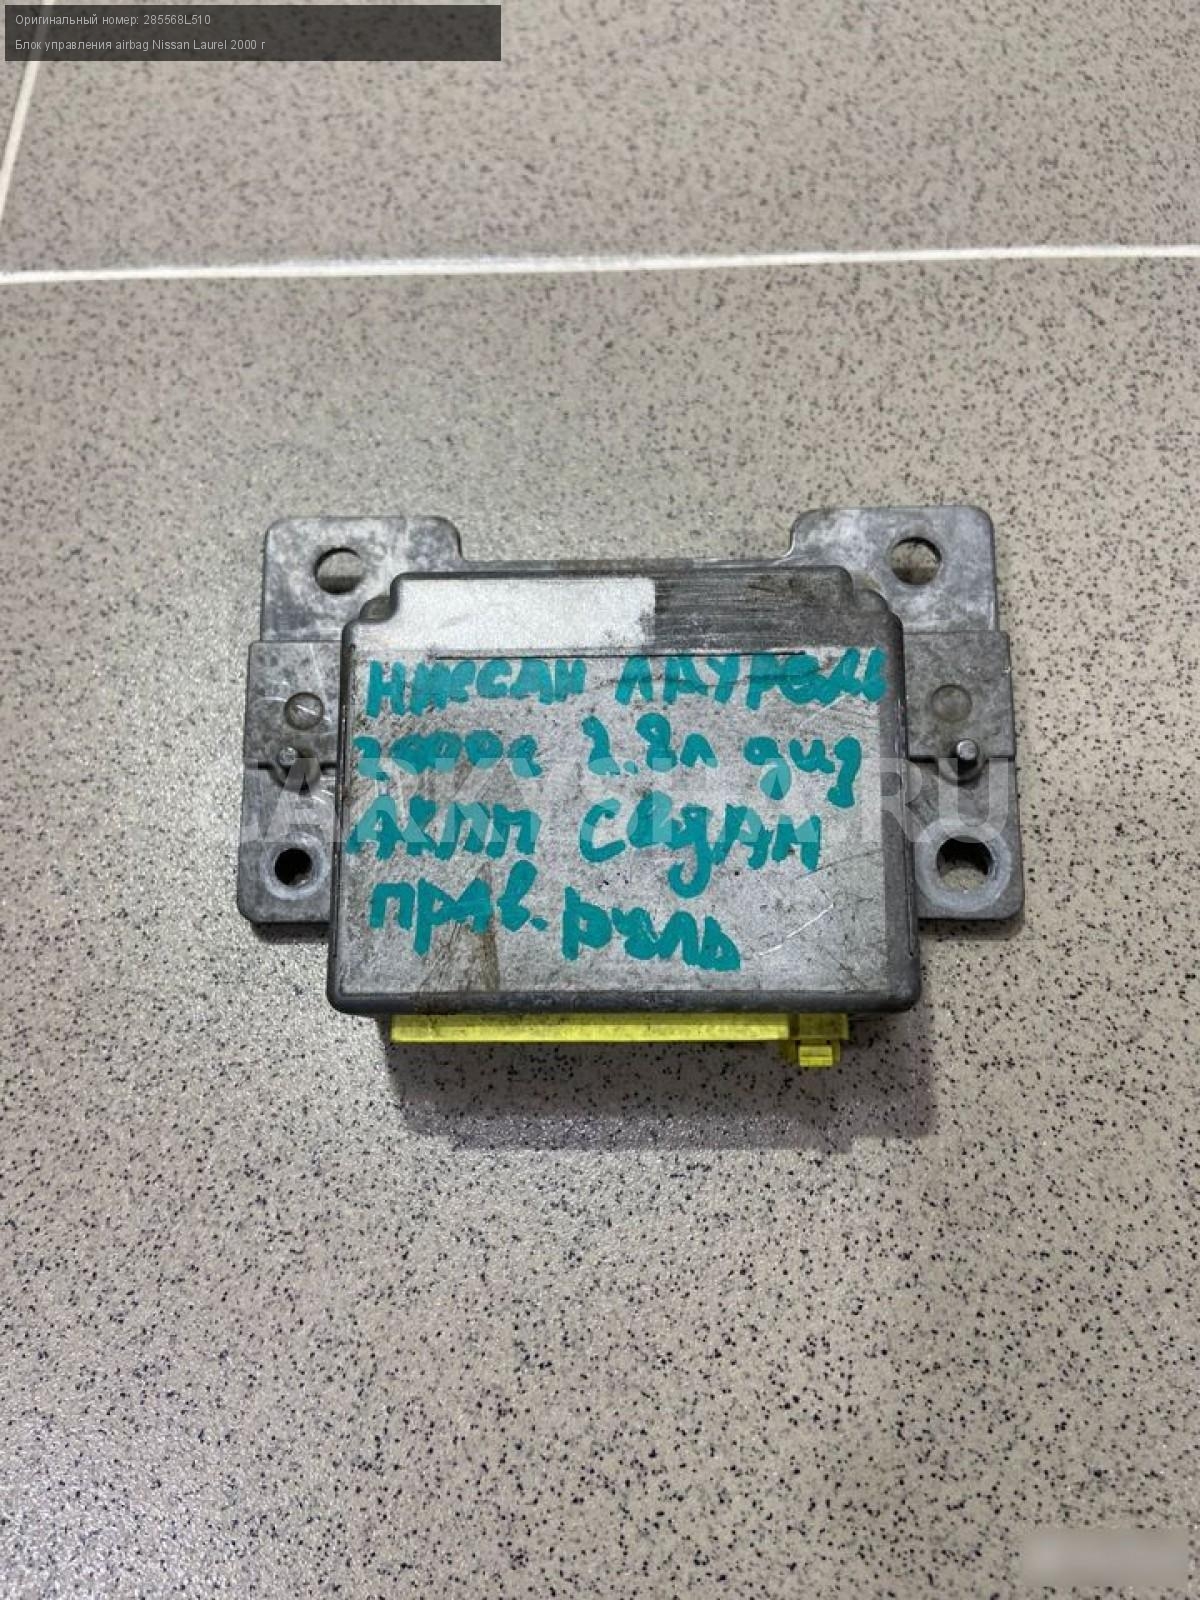 Оригинальный номер: 285568L510
Блок управления airbag Nissan Laurel 2000 г
Ниссан Лаурель
2000г 2.8л диз
АКПП СедАН
прав. руль